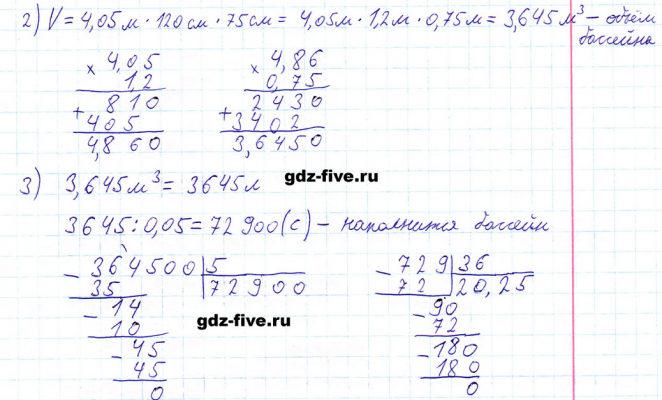 2) V = 4,05 м · 120 см · 75 см = 4,05 м · 1,2 м · 0,75 м = 3,645 м³ – объём
бассейна
× 4,05
1 2
+ 810
405
4,860
× 4,86
0,75
+ 2430
3402
3,6450
3) 3,645 м³ = 3645 л
gdz-five.ru
3645 : 0,05 = 72 900 (с) – наполнится бассейн
– 364500 | 5
35 | 72900
– 14
10
– 45
45
0
gdz-five.ru
– 729 | 36
72 | 20,25
– 90
72
– 180
180
0